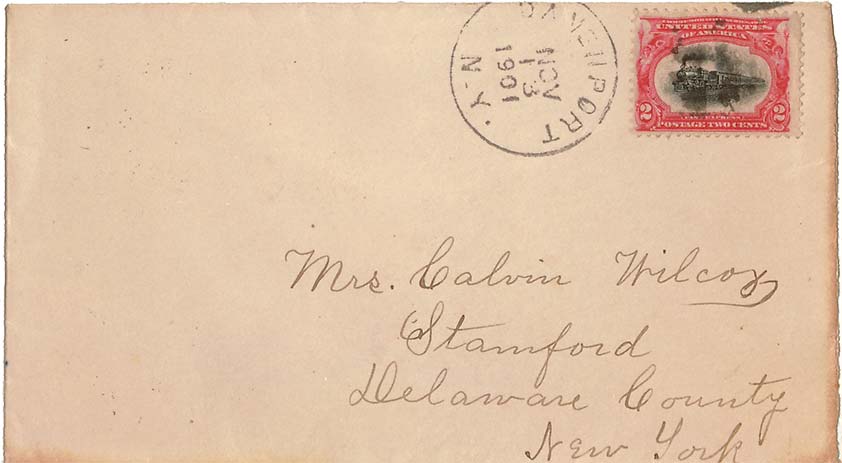 DAVENPORT
NOV
13
1901
N.Y.
UNITED STATES
OF AMERICA
2 2
POSTAGE TWO CENTS
Mrs. Calvin Wilcox
Stamford
Delaware County
New York